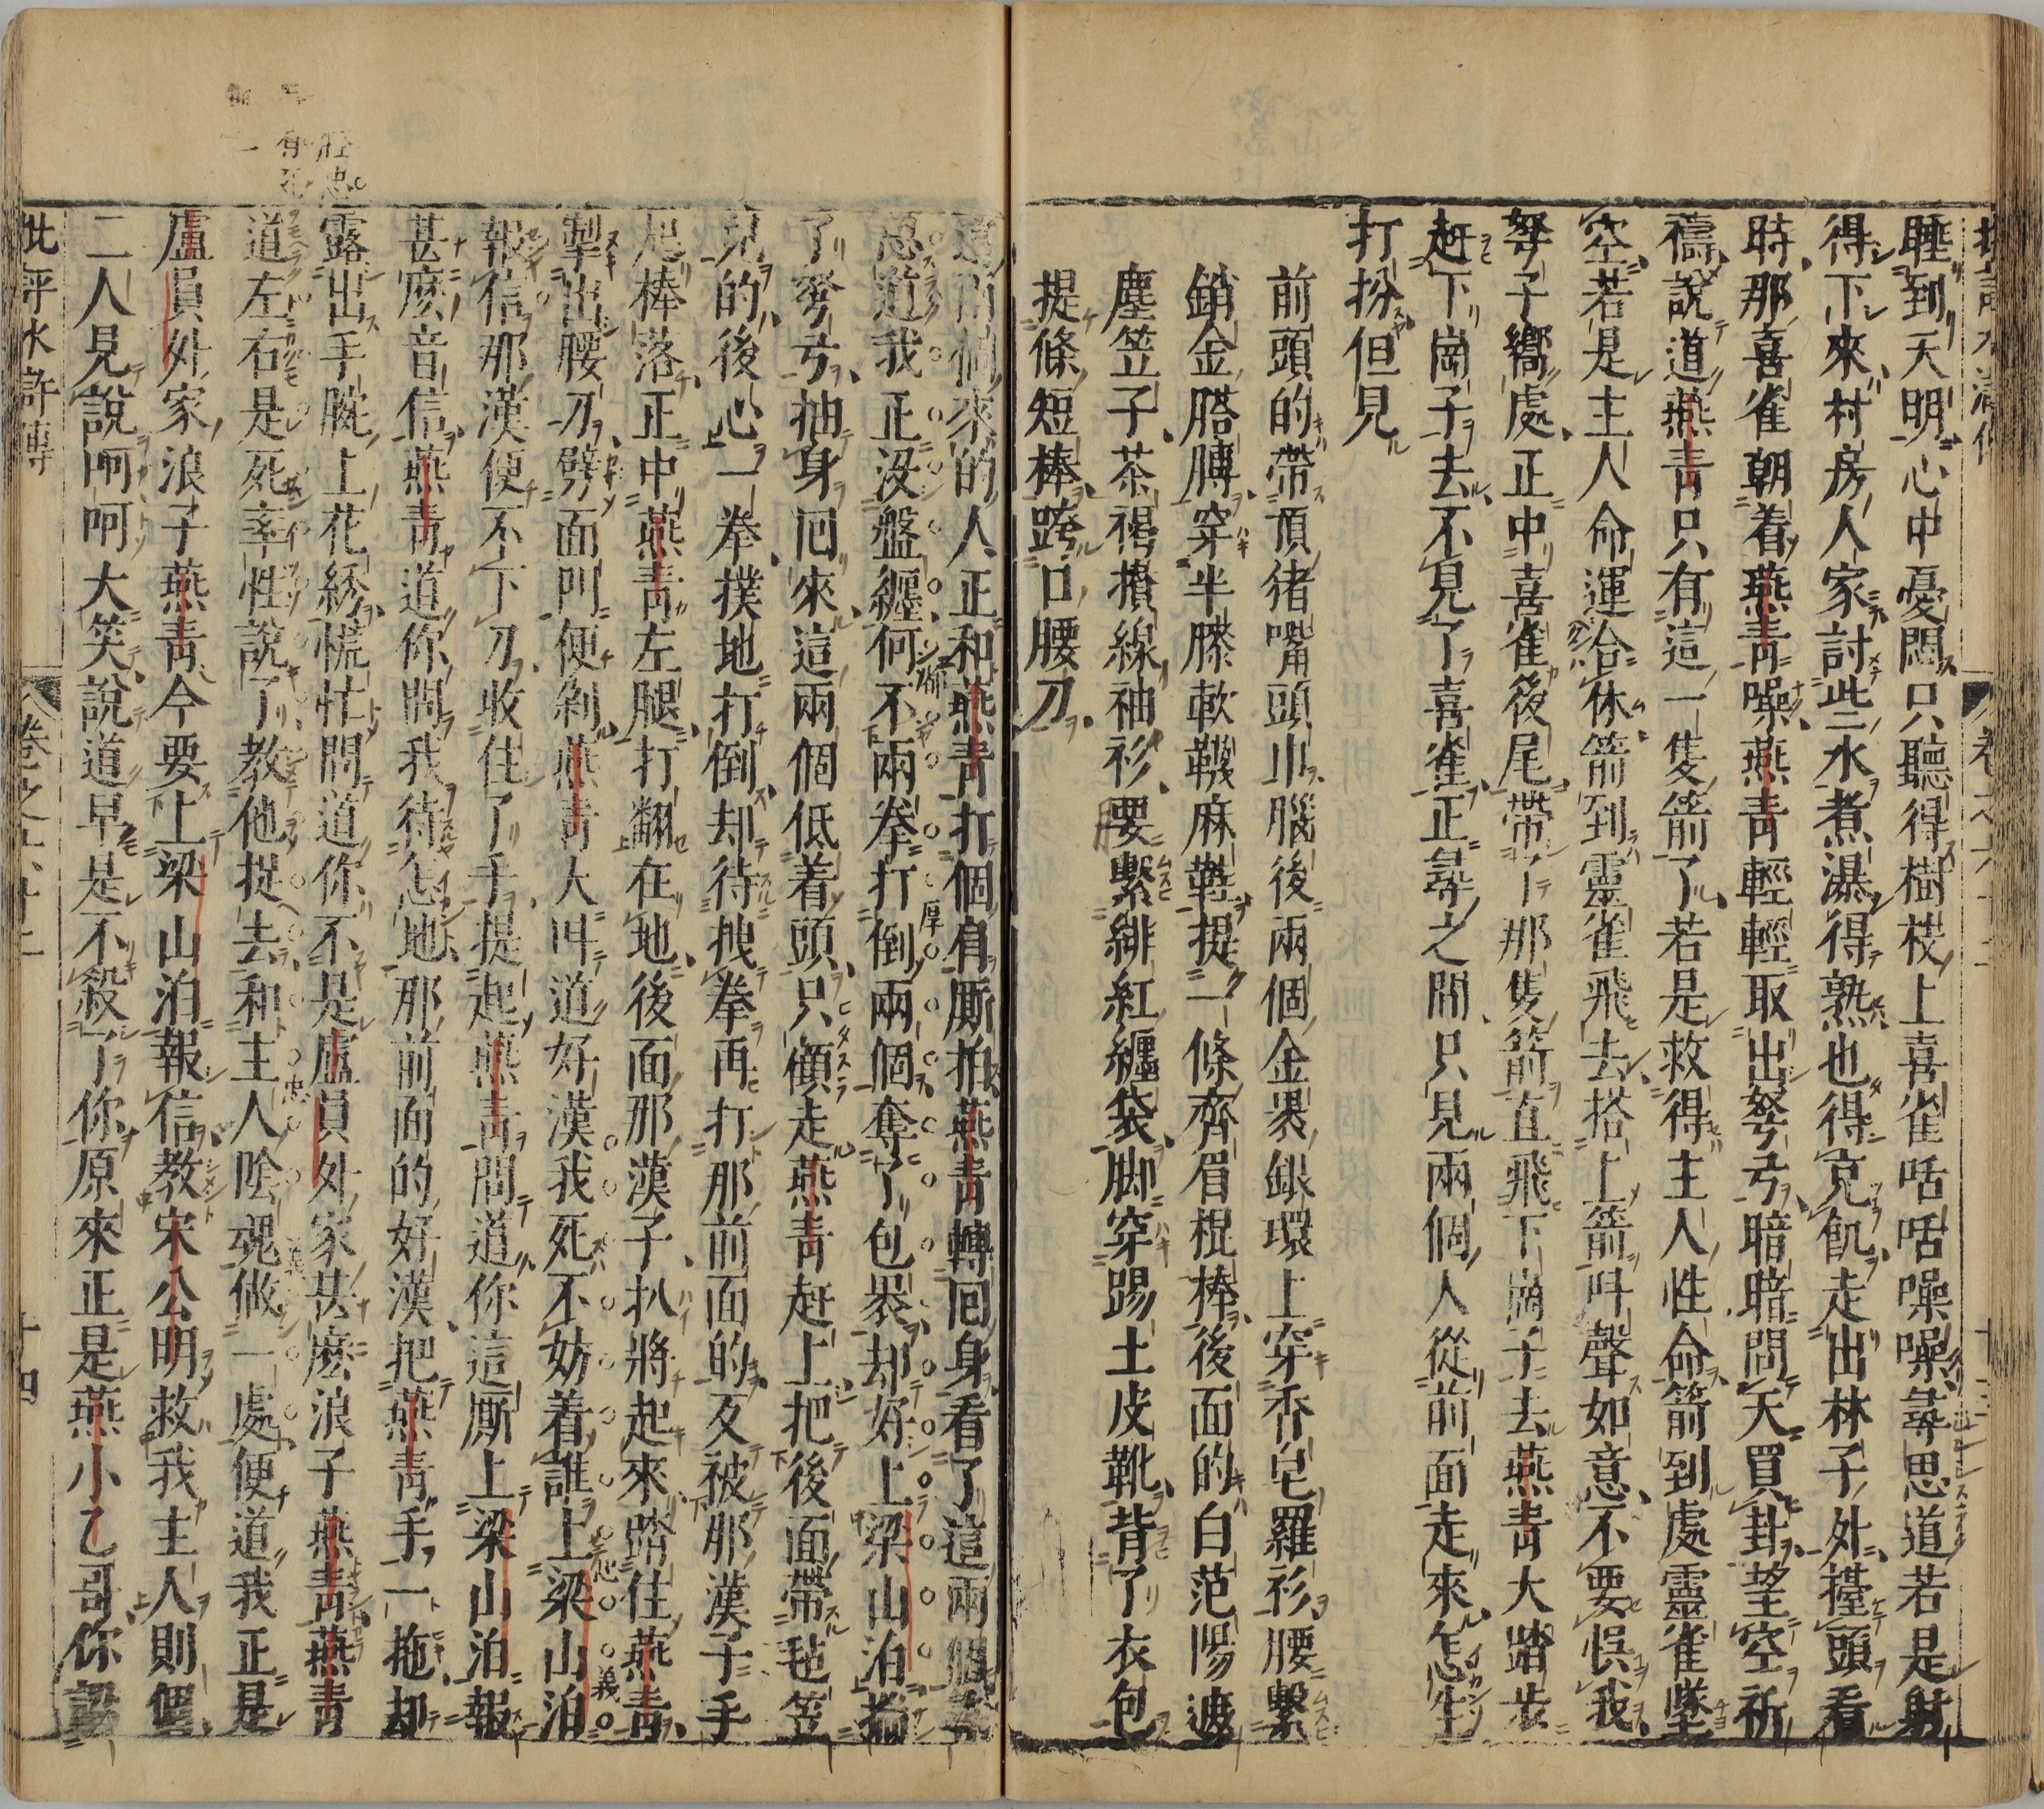 睡到天明心中憂悶只聽得樹枝上喜雀咶咶噪噪尋思道若是射
得下來村房人家討些水煮瀑得熟也得充飢走出林子外擡頭看
時那喜雀朝着燕青噪燕青輕輕取出弩弓暗暗問天買卦望空祈
禱說道燕青只有這一隻箭了若是救得主人性命箭到處靈雀墜
空若是主人命運合休箭到靈雀飛去搭上箭呌聲如意不要悞我
弩子嚮處正中喜雀後尾帶了那隻箭直飛下崗子去燕青大踏步
赶下崗子去不見了喜雀正尋之間只見兩個人從前面走來怎生
打扮但見
前頭的帶頂猪嘴頭巾腦後兩個金裹銀環上穿香皂羅衫腰繫
銷金膳膊穿半膝軟襪麻鞋提一條齊眉棍棒後面的白范陽遮
塵笠子茶褐攢線袖衫要繫緋紅纏袋脚穿踢土皮靴背了衣包
提條短棒跨口腰刀
這兩個來的人正和燕青打個肩厮拍燕青轉囘身看了這兩個
道我正没盤纏何不兩拳打倒兩個奪了包裹却好上梁山泊
了弩弓抽身囘來這兩個低着頭只顧走燕青赶上把後面帶毡笠
兒的後心一拳撲地打倒却待拽拳再打那前面的反被那漢子手
起棒落正中燕青左腿打翻在地後面那漢子扒將起來踏住燕青
掣出腰刀劈面門便剁燕青大呌道好漢我死不妨着誰上梁山泊
報信那漢便不下刀收住了手提起燕青問道你這厮上梁山泊報
甚麽音信燕青道你問我待怎地那前面的好漢把燕青手一拖却
露出手腕上花綉慌忙問道你不是盧員外家甚麽浪子燕青燕青
道左右是死率性說了教他捉去和主人陰魂做一處便道我正是
盧員外家浪子燕青今要上梁山泊報信教宋公明救我主人則個
二人見說呵呵大笑說道早是不殺了你原來正是燕小乙哥你
批評水滸傳
卷之
十四